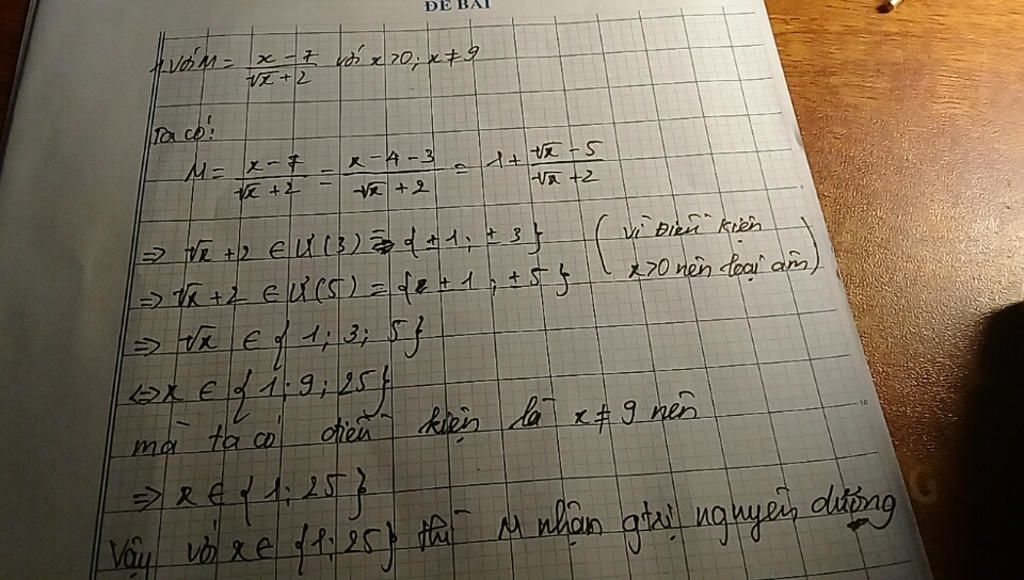 ĐỀ BÀI
Với M = (x - 7)/(√x + 2) với x > 0; x ≠ 9
Ta có:
M = (x - 7)/(√x + 2) = (x - 4 - 3)/(√x + 2) = 1 + (√x - 5)/(√x + 2)
⇒ √x + 2 ∈ Ư(3) = {±1; ±3} (vì Điều kiện
⇒ √x + 2 ∈ Ư(5) = {±1; ±5} x > 0 nên loại âm)
⇒ √x ∈ {1; 3; 5}
⇔ x ∈ {1; 9; 25}
mà ta có điều kiện là x ≠ 9 nên
⇒ x ∈ {1; 25}
Vậy với x ∈ {1; 25} thì M nhận gtrị nguyên dương